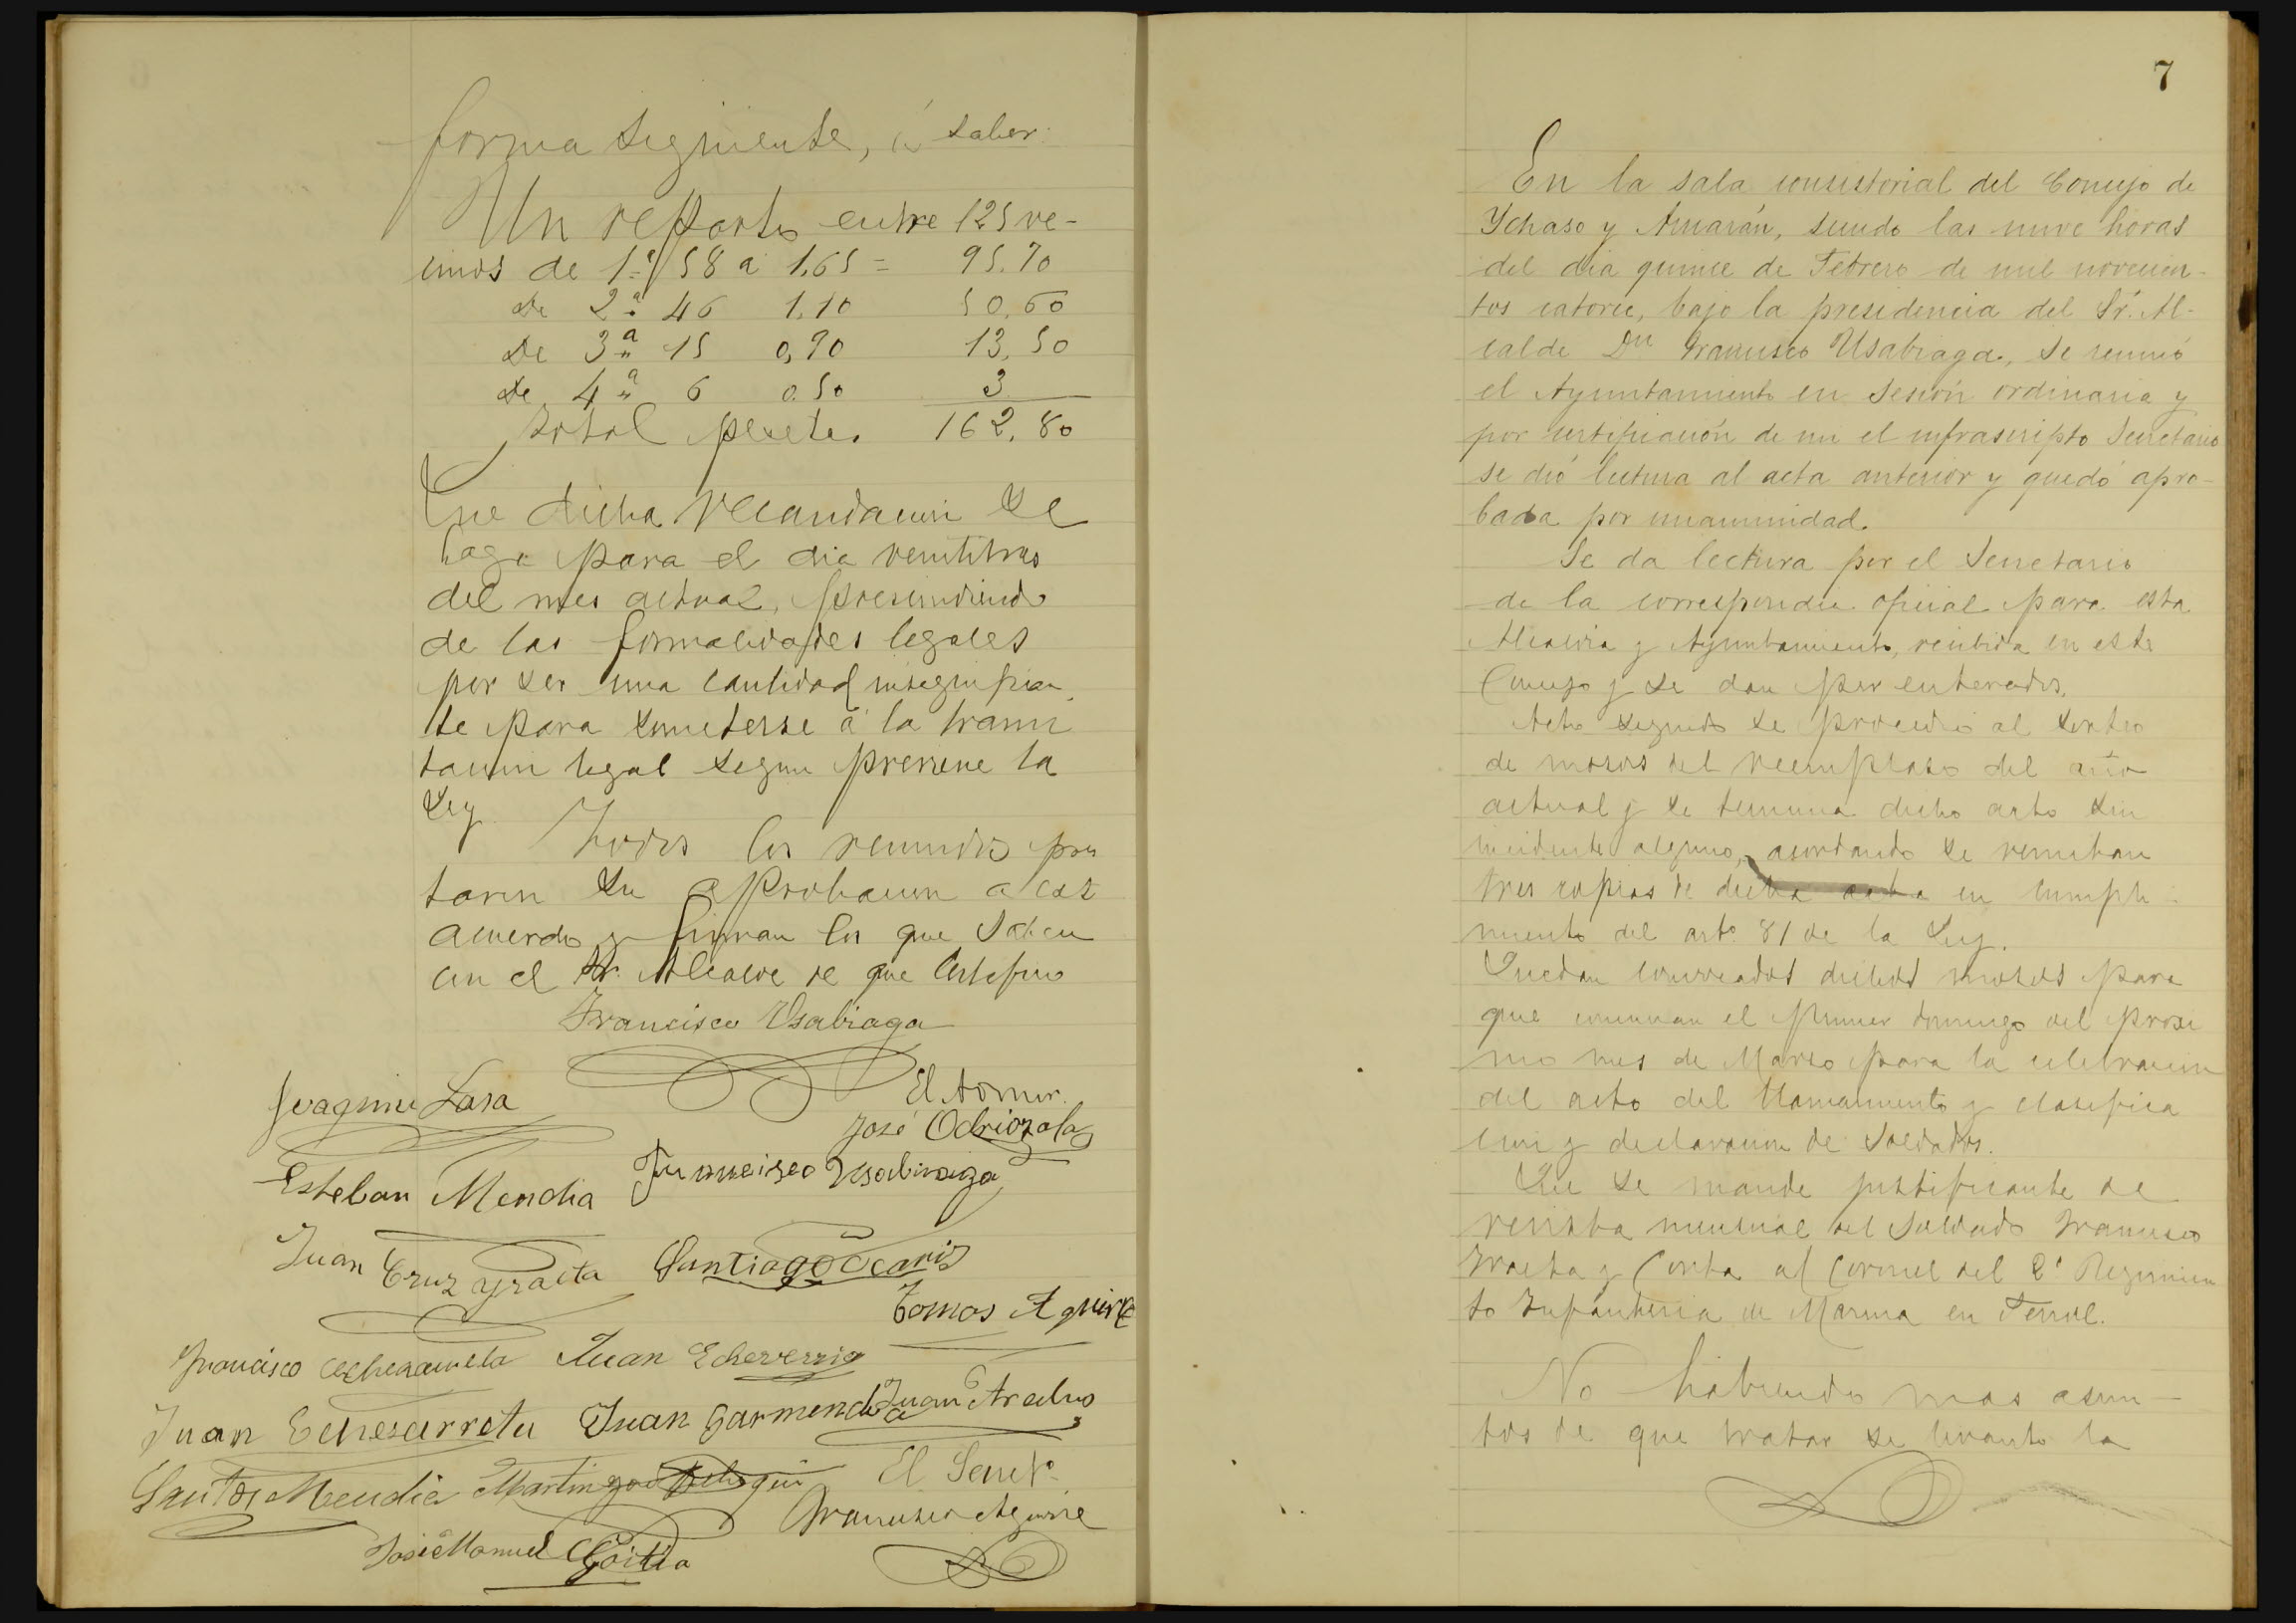 forma siguiente, á saber:
Un reparto entre 125 ve-
cinos de 1ª 58 a 1,65 = 95.70
De 2ª 46 1,10 50,60
De 3ª 15 0,90 13,50
De 4ª 6 0.50 3
Total pesetas 162,80
Que dicha recaudacion se
haga para el dia veintitres
del mes actual, prescindiendo
de las formalidades legales
por ser una cantidad insignifican
te para someterse á la trami
tacion legal segun previene la
Ley
Todos los reunidos pres
taron su aprobacion a este
acuerdo y firman los que saben
con el Sr. Alcalde de que certifico
Francisco Usabiaga
Joaquin Lasa
El
José Odriozola
Esteban Mendia Francisco Usabiaga
Juan Cruz Yraeta Santiago Ocariz
Tomas Aguirre
Francisco Juan Echeverria
Juan Echezarreta Juan Garmendia Juan
Santos Mendia Martin El Secretº
Francisco Aguirre
José Manuel Goitia
7
En la sala consistorial del Concejo de
Ychaso y Arriarán, siendo las nueve horas
del dia quince de Febrero de mil novecien-
tos catorce, bajo la presidencia del Sr. Al-
calde Dn Francisco Usabiaga, se reunió
el Ayuntamiento en sesión ordinaria y
por certificación de mi el infrascripto Secretario
se dió lectura al acta anterior y quedó apro-
bada por unanimidad.
Se da lectura por el Secretario
de la correspondcia oficial para esta
Alcaldia y Ayuntamiento, recibida en este
Concejo y se dan por enterados.
Acto seguido se procedio al sorteo
de mosos del reemplaso del año
actual y se termina dicho acto sin
incidente alguno, acordando se remitan
tres copias de dicha acta en cumpli-
miento del artº 81 de la Ley.
Quedan convocados dichos mosos para
que concurran el primer domingo del proxi
mo mes de Marso para la celebracion
del acto del llamamiento y clasifica
cion y declaracion de Soldados.
Que se mande justificante de
revista mensual del Soldado Francisco
Yraeta y Corta al Coronel del 2º Regimien
to Infanteria de Marina en Ferrol.
No habiendo mas asun-
tos de que tratar se levanto la